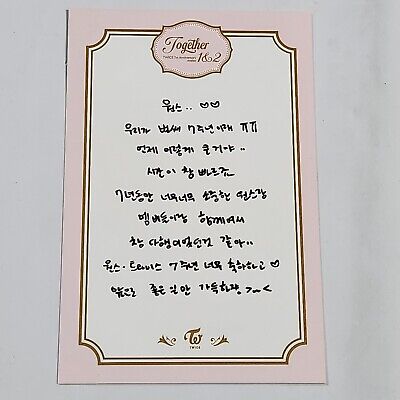 Together
TWICE 7th Anniversary
1&2
원스.. ♡♡
우리가 벌써 7주년이래 ㅠㅠ
언제 이렇게 큰거야..
시간이 참 빠르죠
7년동안 너무너무 소중한 원스랑
멤버들이랑 함께여서
참 다행이었던것 같아..
원스·트와이스 7주년 너무 축하하고 ♡
앞으로 좋은 일만 가득하장 >~<
TWICE